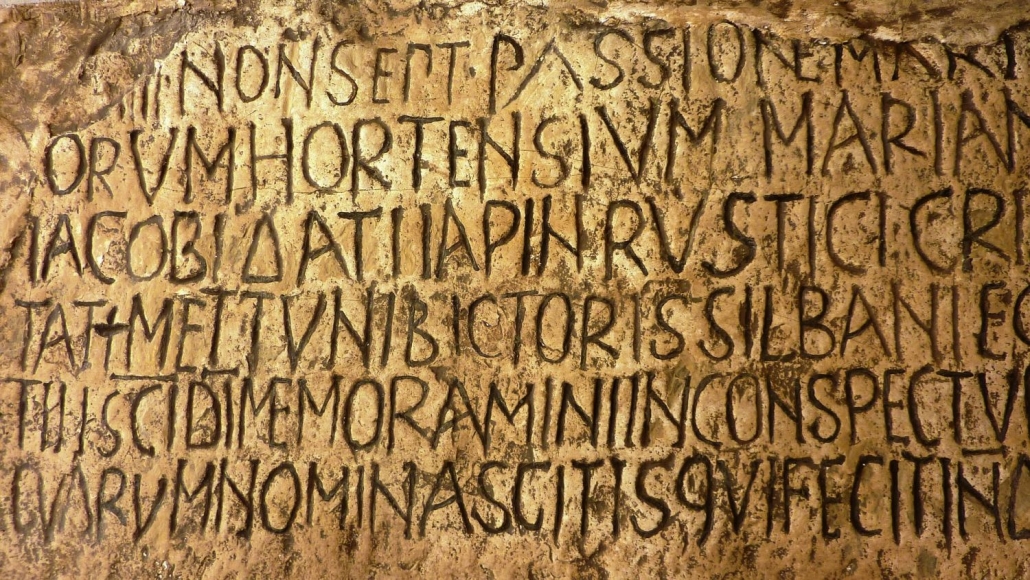 IIII NON SEPT PASSIONE MARTV
ORVM HORTENSIVM MARIAN
IACOBI DATI IAPIN RVSTICI CRI
TATI METTVNI BICTORIS SILBANI EG
TII SCI DI MEMORAMINI IN CONSPECTV
QVARVM NOMINA SCITIS QVI FECIT IN